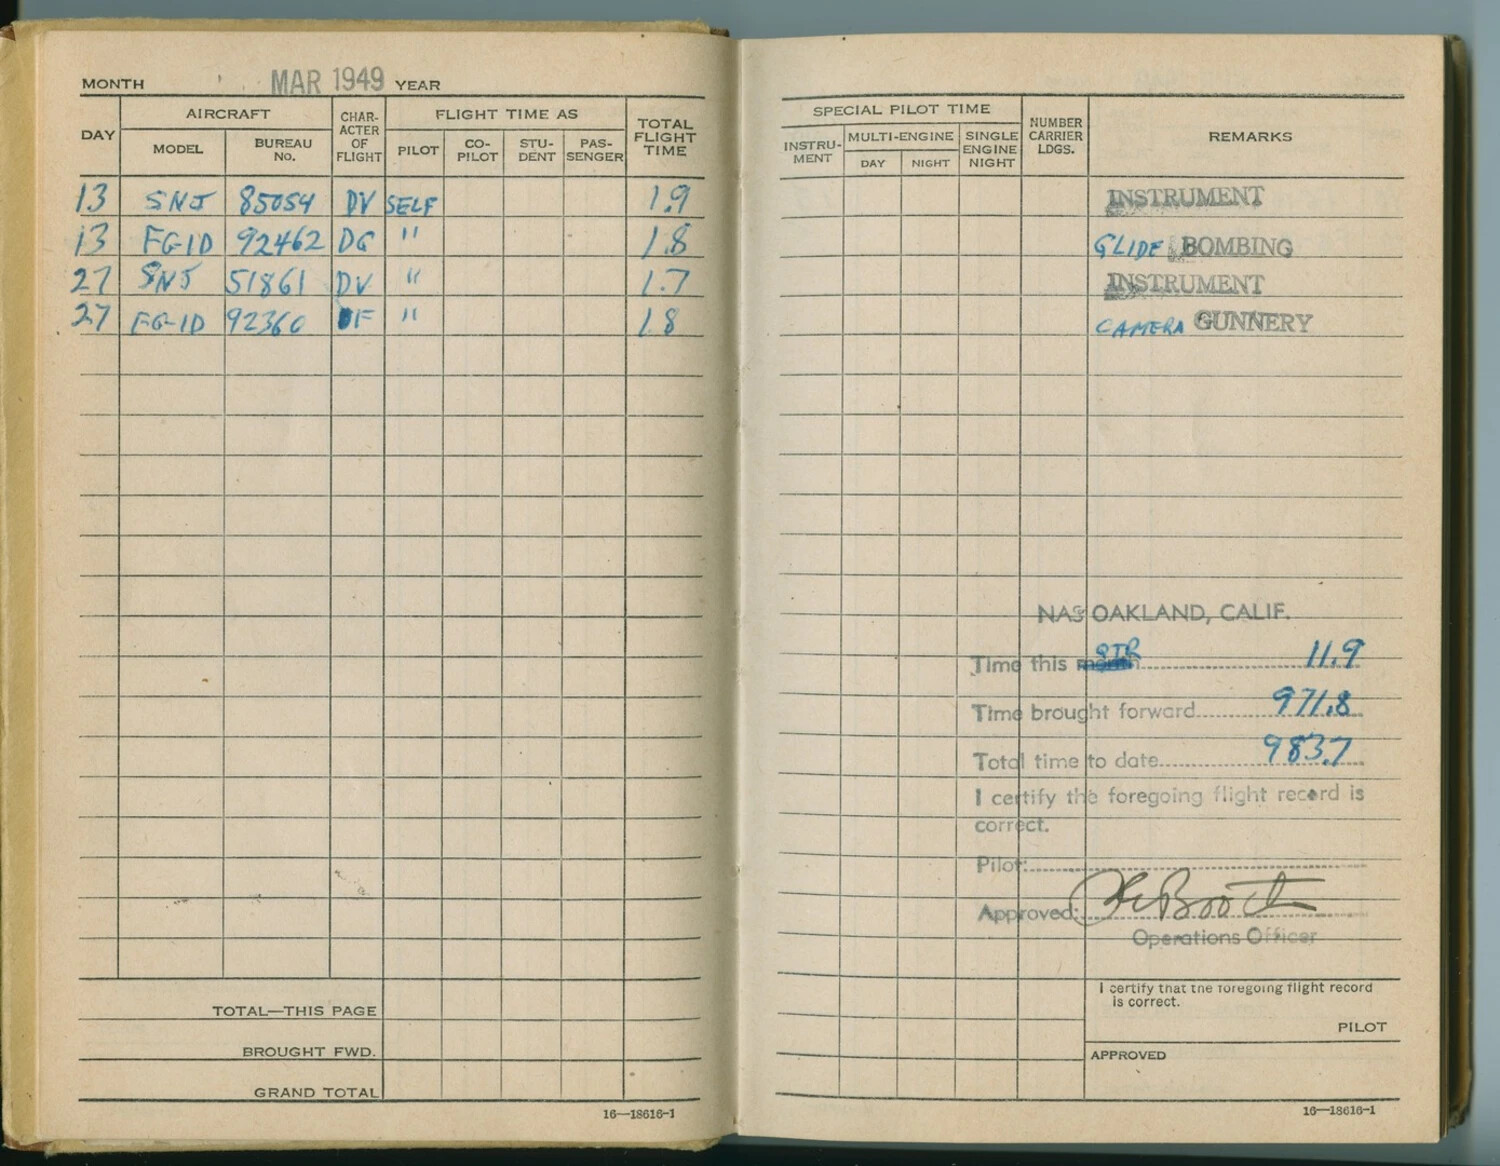 MONTH MAR 1949 YEAR
DAY AIRCRAFT CHAR-ACTER OF FLIGHT FLIGHT TIME AS TOTAL FLIGHT TIME
MODEL BUREAU No. PILOT CO-PILOT STU-DENT PAS-SENGER
13 SNJ 85054 DV SELF 1.9
13 FG-1D 92462 DG " 1.8
27 SNJ 51861 DV " 1.7
27 FG-1D 92360 F " 1.8
TOTAL—THIS PAGE
BROUGHT FWD.
GRAND TOTAL
16—18616-1
SPECIAL PILOT TIME NUMBER CARRIER LDGS. REMARKS
INSTRU-MENT MULTI-ENGINE SINGLE ENGINE NIGHT
DAY NIGHT
INSTRUMENT
GLIDE BOMBING
INSTRUMENT
CAMERA GUNNERY
NAS OAKLAND, CALIF.
Time this QTR 11.9
Time brought forward 971.8
Total time to date 983.7
I certify the foregoing flight record is
correct.
Pilot:
Approved:
Operations Officer
I certify that the foregoing flight record
is correct.
PILOT
APPROVED
16—18616-1